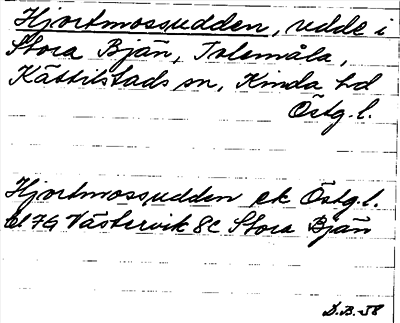 Hjortmossudden, udde i
Stora Bjän, Tolemåla,
Kättilstads sn, Kinda hd
Östg.l.
Hjortmossudden ek Östg.l.
bl 79 Västervik 8c Stora Bjän
D.B.-58